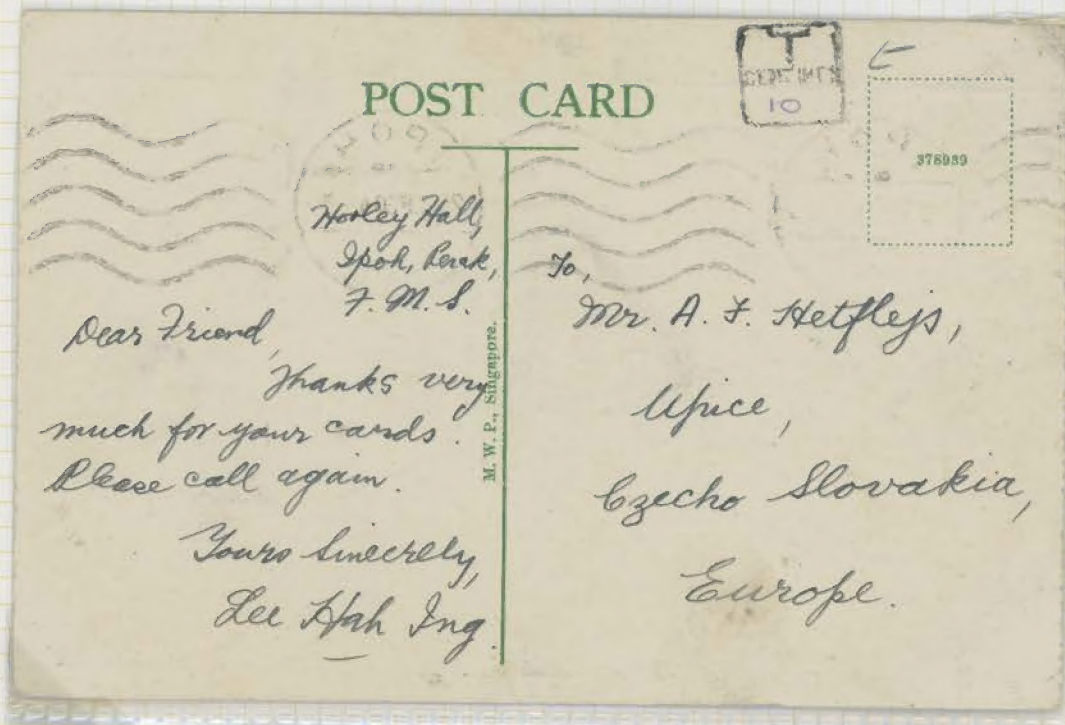 POST CARD
T
CENTIMES
10
378939
IPOH
Horley Hall,
Ipoh, Perak,
F. M. S.
Dear Friend,
Thanks very
much for your cards.
Please call again.
Yours Sincerely,
Lee Hah Ing.
M. W. P., Singapore.
To,
Mr. A. F. Hetflejs,
Upice,
Czecho Slovakia,
Europe.